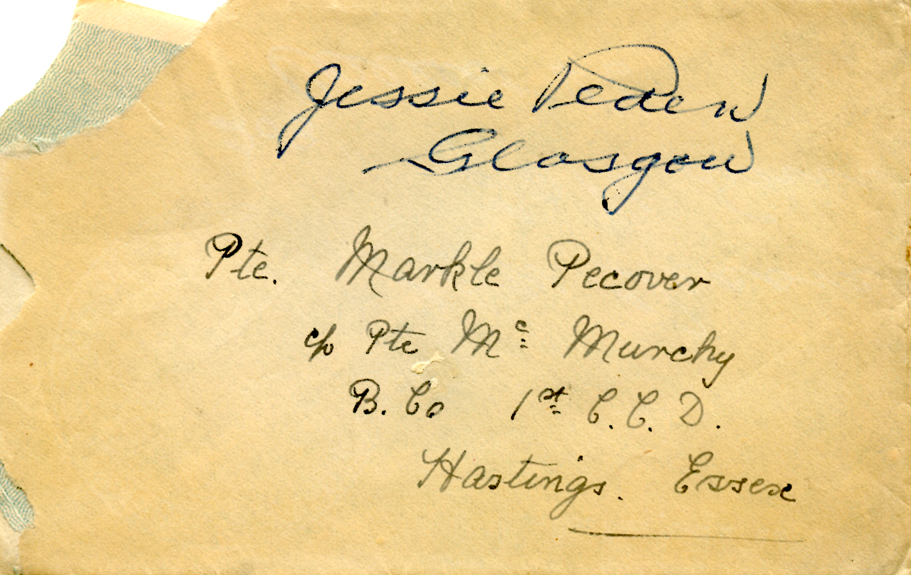 Jessie Peden
Glasgow
Pte. Markle Pecover
c/o Pte Mc Murchy
B. Co 1st C. C. D.
Hastings. Essex